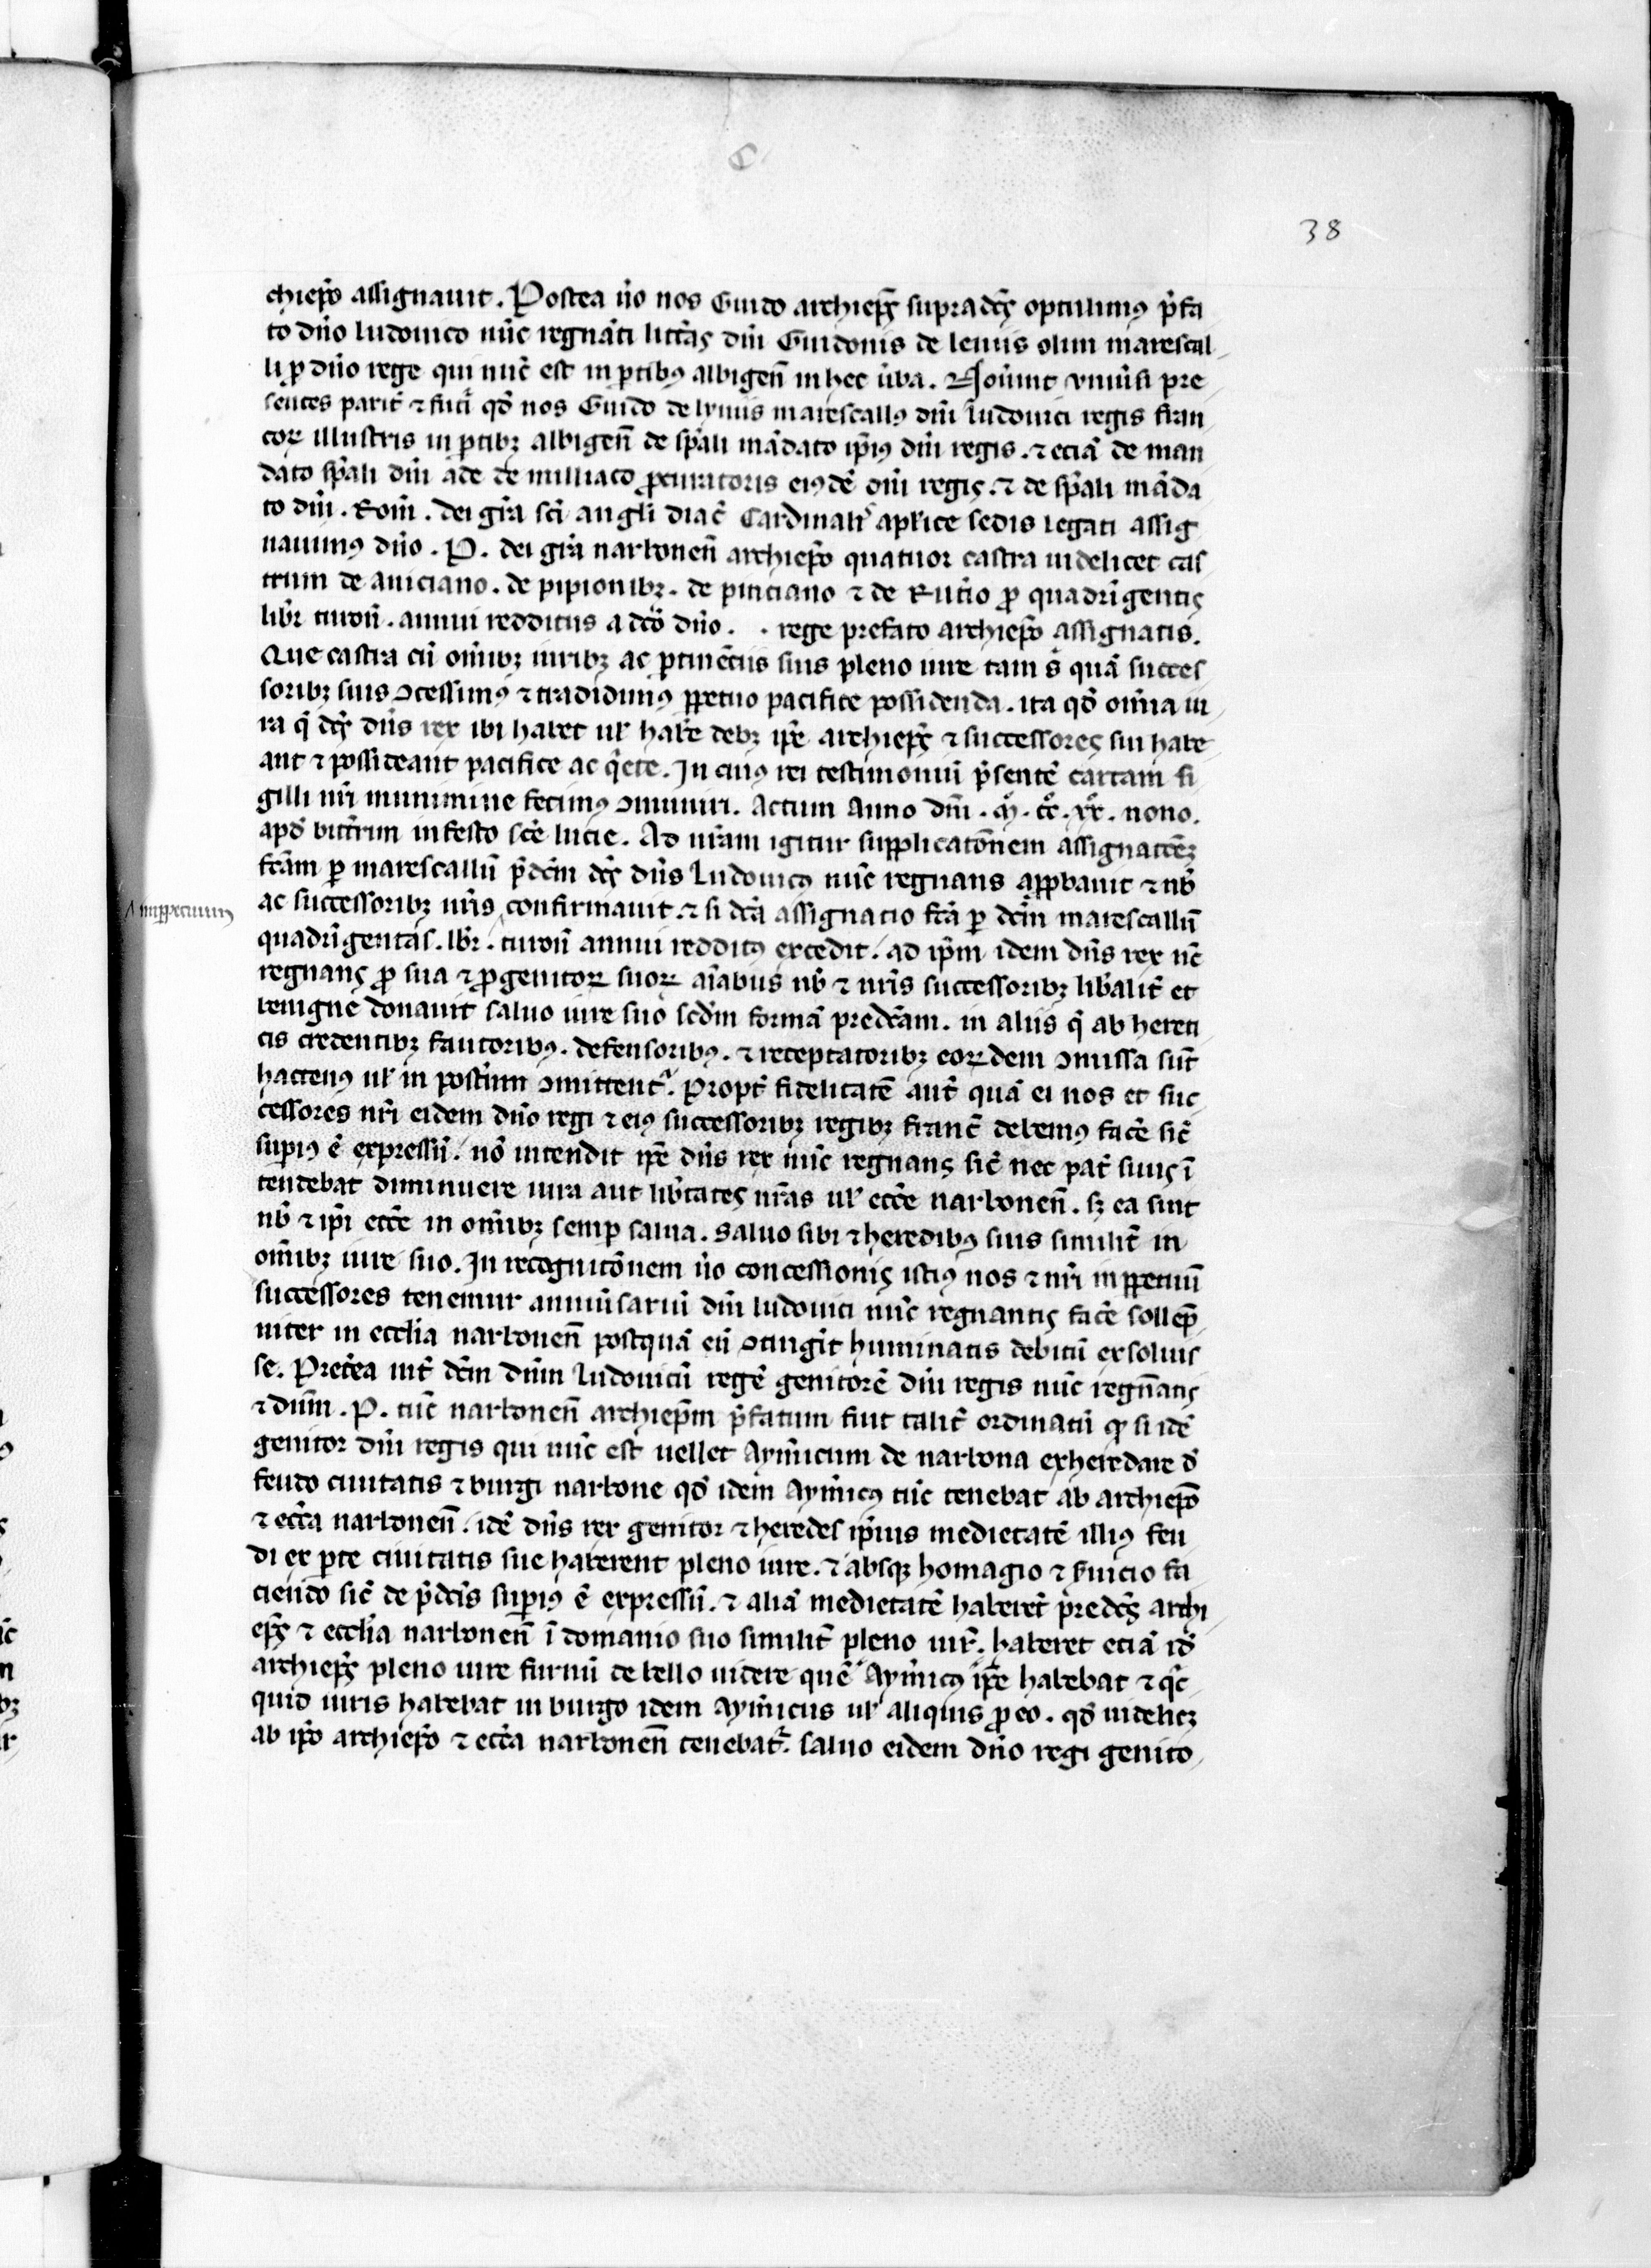 38
chiep̃o assignauit. Postea ũo nos Guido archiep̃s supradc̃s optulimꝰ p̃fa
to dño ludouico nũc regnãti litt̃as dñi Guidonis de leuiis olim marescal
li ꝓ dño rege qui nũc est in ꝑtibꝰ albigeñ in hec ũba. Nouint vniũsi pre
sentes parit̃ ⁊ futĩ qđ nos Guido de lyuiis marescallꝰ dñi ludouici regis fran
coꝝ illustris in ꝑtibꝫ albigeñ de sp̃ali mãdato ip̃iꝰ dñi regis. ⁊ eciã de man
dato sp̃ali dñi ade de milliaco ꝓcuratoris eiꝰdẽ dñi regis. ⁊ de sp̃ali mãda
to dñi. Rom̃. dei gr̃a sc̃i angli diac̃ Cardinal̃ apl̃ice sedis legati assig
nauimꝰ dño. P. dei gr̃a narboneñ archiep̃o quatuor castra uidelicet cas
trum de auiciano. de pipionibꝫ. de pinciano ⁊ de Rut̃io ꝓ quadrĩgentis
libr̃ turoñ. annui redditus a dc̃o dño. . rege prefato archiep̃o assignatis.
Que castra cũ om̃ibꝫ iuribꝫ ac ꝑtinẽciis suis pleno iure tam s̃ quã succes
soribꝫ suis ꝯcessimꝰ ⁊ tradidimꝰ ꝑpetuo pacifice possidenda. ita qđ om̃ia iu
ra q̃ dc̃s dñs rex ibi habet ul̃ habẽ debꝫ ip̃e archiep̃s ⁊ successores sui habe
ant ⁊ possideant pacifice ac q̃ete. In cuiꝰ rei testimoniũ p̃sentẽ cartam si
gilli nr̃i munimine fecimꝰ ꝯmuniri. Actum Anno dñi. m̊. cc̊. xx̊. nono.
apđ bitt̃rim in festo sc̃e lucie. Ad nr̃am igitur supplicatõnem assignatõẽꝫ
fc̃am ꝑ marescallũ p̃dc̃m dc̃s dñs Ludouicꝰ nũc regnans apꝓbauit ⁊ nb̃
ac successoribꝫ nr̃is ^ confirmauit. ⁊ si dc̃a assignacio fc̃a ꝑ dc̃m marescallũ
^ inꝑpetuum
quadrĩgentas. libr̃. turoñ annui redditꝰ excedit. ad ip̃m idem dñs rex nc̃
regnans ꝓ sua ⁊ ꝓgenitoꝝ suoꝝ aĩabus nb̃ ⁊ nr̃is successoribꝫ lib̃alit̃ et
benigne donauit saluo iure suo scd̃m formã predc̃am. in aliis q̃ ab hereti
cis credentibꝫ fautoribꝰ. defensoribꝰ. ⁊ receptatoribꝫ eoꝝdem ꝯmissa sũt
hactenꝰ ul̃ in post̃um ꝯmittent̃. Propt̃ fidelitatẽ aut̃ quã ei nos et suc
cessores nr̃i eidem dño regi ⁊ eiꝰ successoribꝫ regibꝫ franc̃ debemꝰ fac̃e sic̃
supiꝰ ẽ expressũ. nõ intendit ip̃e dñs rex nũc regnans sic̃ nec pat̃ suus ĩ
tendebat diminuere iura aut lib̃tates nr̃as ul̃ ecc̃e narboneñ. sꝫ ea sint
nb̃ ⁊ ip̃i ecc̃e in om̃ibꝫ semꝑ salua. saluo sibi ⁊ heredibꝰ suis similit̃ in
om̃ibꝫ iure suo. In recognitõnem ũo concessionis istiꝰ nos ⁊ nr̃i inꝑpetuũ
successores tenemur anniũsariũ dñi ludouici nũc regnantis fac̃e sollep̃
niter in ecclia narboneñ postquã eũ ꝯtingit humanitatis debitũ exsoluis
se. Pret̃ea int̃ dc̃m dñm Ludouicũ regẽ genitorẽ dñi regis nũc regnãtis
⁊ dñm. P. tũc narboneñ archiep̃m p̃fatum fuit talit̃ ordinatũ qꝫ si idẽ
genitor dñi regis qui nũc est uellet Aym̃icum de narbona exheredare đ
feudo ciuitatis ⁊ burgi narbone qđ idem Aym̃icꝰ tũc tenebat ab archiep̃o
⁊ ecc̃a narboneñ. idẽ dñs rex genitor ⁊ heredes ip̃ius medietatẽ illiꝰ feu
di ex ꝑte ciuitatis sue haberent pleno iure. ⁊ absqꝫ homagio ⁊ s̃uicio fa
ciendo sic̃ de p̃dc̃is supiꝰ ẽ expressũ. ⁊ aliã medietatẽ haberet̃ predc̃s archi
ep̃s ⁊ ecclia narboneñ ĩ domanio suo similit̃ pleno iur̃. haberet eciã idẽ
archiep̃s pleno iure furnũ de bello uidere quẽ Aym̃icꝰ ip̃e habebat ⁊ qc̃
quid iuris habebat in burgo idem Aym̃icus ul̃ aliquis ꝓ eo. qđ uidelicꝫ
ab ip̃o archiep̃o ⁊ ecc̃a narboneñ tenebat̃. saluo eidem dño regi genito